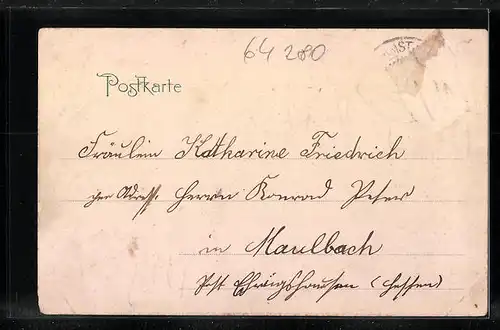 64 280
Postkarte
Fräulein Katharine Friedrich
per Adresse Herrn Konrad Peter
in Maulbach
Post (Hessen)